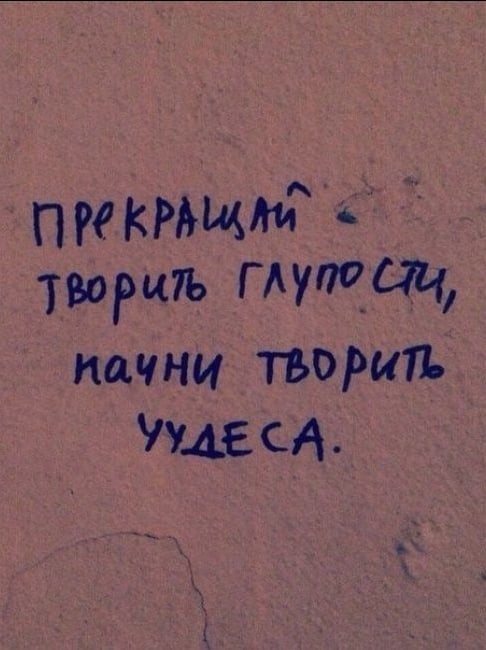 ПРеКРАЩАЙ
ТВОРИТЬ ГЛУПОСТИ,
НАЧНИ ТВОРИТЬ
ЧУДЕСА.